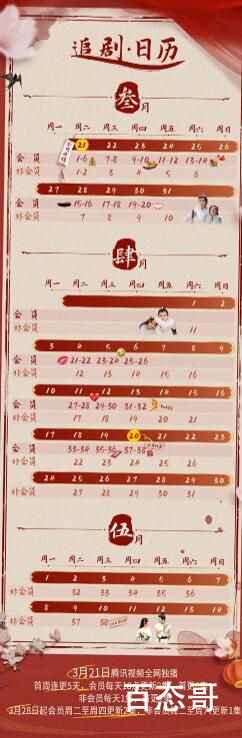 追剧·日历
叁月
周一 周二 周三 周四 周五 周六 周日
21 22 23 24 25 26
会员 1-6 7-8 9-10 11-12 13-14
非会员 1-2 3 4 5 6
27 28 29 30 31
会员 15-16 17-18 19-20
非会员 7 8 9 10
肆月
周一 周二 周三 周四 周五 周六 周日
1 2
会员
非会员 11
3 4 5 6 7 8 9
会员 21-22 23-24 25-26
非会员 12 13 14 15 16
10 11 12 13 14 15 16
会员 27-28 29-30 31-32
非会员 17 18 19 20 21
17 18 19 20 21 22 23
会员 33-34 35-36 37-38
非会员 22 23 24 25 26
24 25 26 27 28 29 30
非会员 27 28 29 30 31
伍月
周一 周二 周三 周四 周五 周六 周日
1 2 3 4 5 6 7
非会员 32 33 34 35 36
8 9 10 11 12 13 14
非会员 37 38
3月21日腾讯视频全网独播
首周连更5天，会员每天
非会员每天1
3月28日起会员周二至周四更新2集，非会员周二至周六更新1集
百态哥